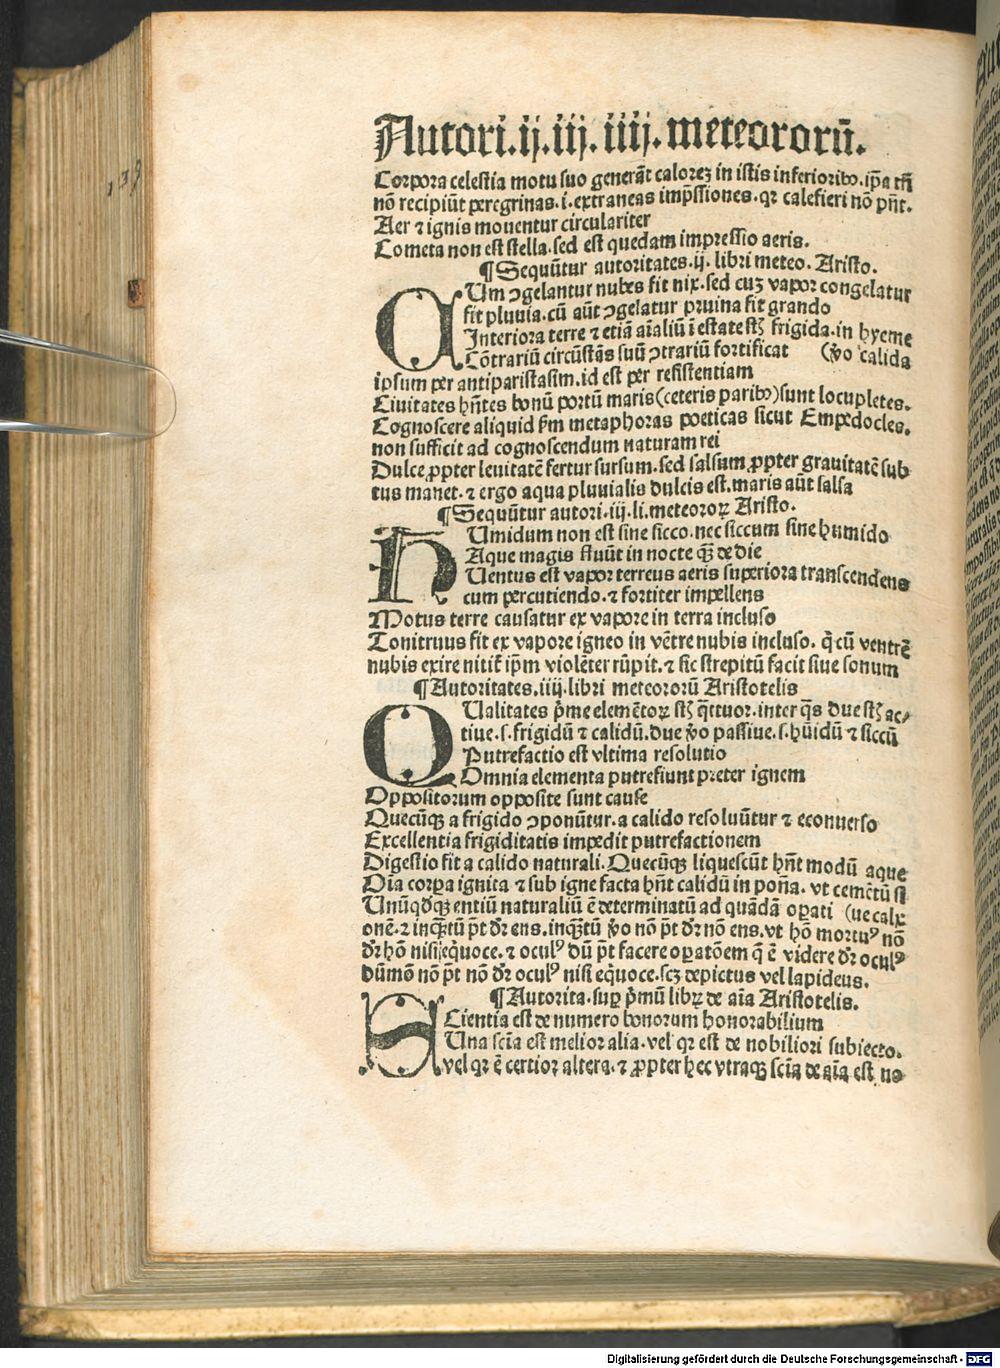 Autori.ij.iij.iiij.meteororū.
Corpora celestia motu suo generāt calorez in istis inferioribꝰ.ip̄a tn̄
nō recipiūt peregrinas.i.extraneas imp̄ssiones.qꝛ calefieri nō pn̄t.
Aer ⁊ ignis mouentur circulariter
Cometa non est stella.sed est quedam impressio aeris.
¶Sequūtur autoritates.ij.libri meteo.Aristo.
CUm ꝯgelantur nubes fit nix.sed cuz vapor congelatur
fit pluuia.cū aūt ꝯgelatur pruina fit grando
Interiora terre ⁊ etiā aīaliū ī estate st̄ frigida.in hyeme
Cōtrariū circūstās suū ꝯtrariū fortificat (v̄o calida
ipsum per antiparistasim.id est per resistentiam
Ciuitates hn̄tes bonū portū maris(ceteris paribꝰ)sunt locupletes.
Cognoscere aliquid fm̄ metaphoras poeticas sicut Empedocles.
non sufficit ad cognoscendum naturam rei
Dulce ꝓpter leuitatē fertur sursum.sed salsum ꝓpter grauitatē sub
tus manet.⁊ ergo aqua pluuialis dulcis est.maris aūt salsa
¶Sequūtur autori.iij.li.meteoroꝝ Aristo.
HUmidum non est sine sicco.nec siccum sine humido
Aque magis fluūt in nocte qꝫ̄ de die
Uentus est vapor terreus aeris superiora transcendens
cum percutiendo.⁊ fortiter impellens
Motus terre causatur ex vapore in terra incluso
Tonitruus fit ex vapore igneo in vētre nubis incluso.q̄ cū ventrē
nubis exire nitit̄ ip̄m violēter rūpit.⁊ sic strepitū facit siue sonum
¶Autoritates.iiij.libri meteororū Aristotelis
QUalitates p̄me elemētoꝝ st̄ q̄ttuor.inter q̄s due st̄ ac/
tiue.s.frigidū ⁊ calidū.due v̄o passiue.s.hūidū ⁊ siccū
Putrefactio est vltima resolutio
Omnia elementa putrefiunt preter ignem
Oppositorum opposite sunt cause
Quecūqꝫ a frigido ꝯponūtur.a calido resoluūtur ⁊ econuerso
Excellentia frigiditatis impedit putrefactionem
Digestio fit a calido naturali.Quecūqꝫ liquescūt hn̄t modū aque
Oīa corꝑa ignita ⁊ sub igne facta hn̄t calidū in pon̄a.vt cemētū si
Unūqd̄qꝫ entiū naturaliū ē determinatū ad quādā oꝑati (ue calx
onē.⁊ inqꝫ̄tū p̄t dr̄ ens.inqꝫ̄tū v̄o nō p̄t dr̄ nō ens.vt hō mortuꝰ nō
dr̄ hō nisi eq̄uoce.⁊ oculꝰ dū p̄t facere oꝑatōem q̄ ē videre dr̄ oculꝰ
dūmō nō p̄t nō dr̄ oculꝰ nisi eq̄uoce.scꝫ depictus vel lapideus.
¶Autorita.suꝑ p̄mū libꝝ de aīa Aristotelis.
SCientia est de numero bonorum honorabilium
Una scīa est melior alia.vel qꝛ est de nobiliori subiecto.
vel qꝛ ē certior altera.⁊ ꝓpter hec vtraqꝫ scīa de aīa est no
139
Digitalisierung gefördert durch die Deutsche Forschungsgemeinschaft - DFG